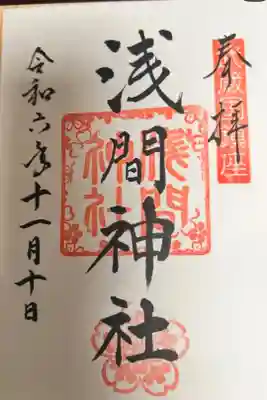 奉拝
浅間神社
令和六年十一月十日
浅間
神社